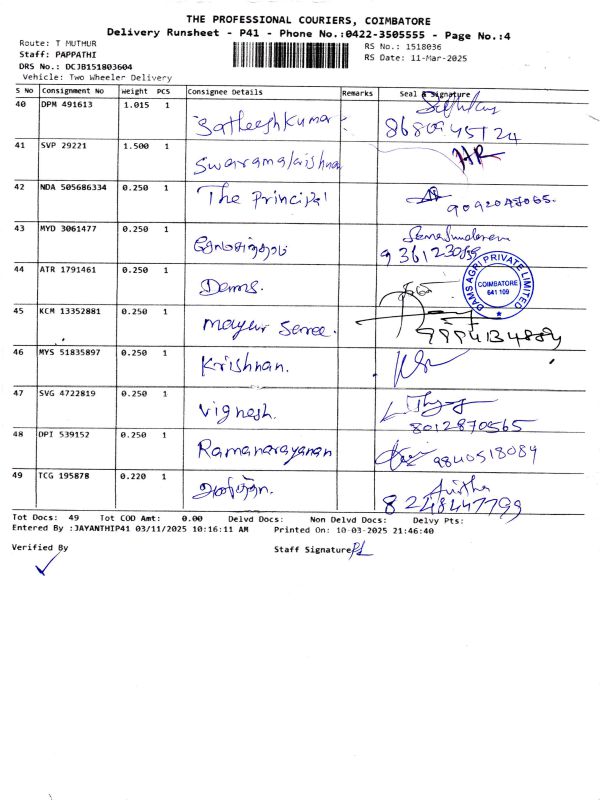 THE PROFESSIONAL COURIERS, COIMBATORE
Delivery Runsheet - P41 - Phone No.:0422-3505555 - Page No.:4
Route: T MUTMUR
Staff: PAPPATHI
DRS No.: DCJB151803604
Vehicle: Two Wheeler Delivery
RS No.: 1518036
RS Date: 11-Mar-2025
S No Consignment No Weight PCS Consignee Details Remarks Seal & Signature
40 DPM 491613 1.015 1 Satheeshkumar
41 SVP 29221 1.500 1
42 NDA 505686334 0.250 1 The Principal
43 MYD 3061477 0.250 1
44 ATR 1791461 0.250 1 Dams.
DAMS AGRI PRIVATE LIMITED
COIMBATORE
641 109
45 KCM 13352881 0.250 1 mayur Seree.
46 MYS 51835897 0.250 1 Krishnan.
47 SVG 4722819 0.250 1 Vignesh.
8012870565
48 DPI 539152 0.250 1 Ramanarayanan
9840518089
49 TCG 195878 0.220 1
8248447799
Tot Docs: 49 Tot COD Amt: 0.00 Delvd Docs: Non Delvd Docs: Delvy Pts:
Entered By :JAYANTHIP41 03/11/2025 10:16:11 AM Printed On: 10-03-2025 21:46:40
Verified By Staff Signature